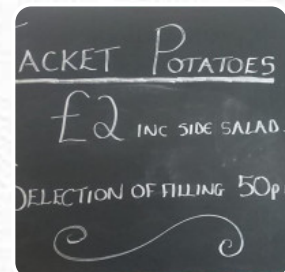 JACKET POTATOES
£2 INC SIDE SALAD.
SELECTION OF FILLING 50p